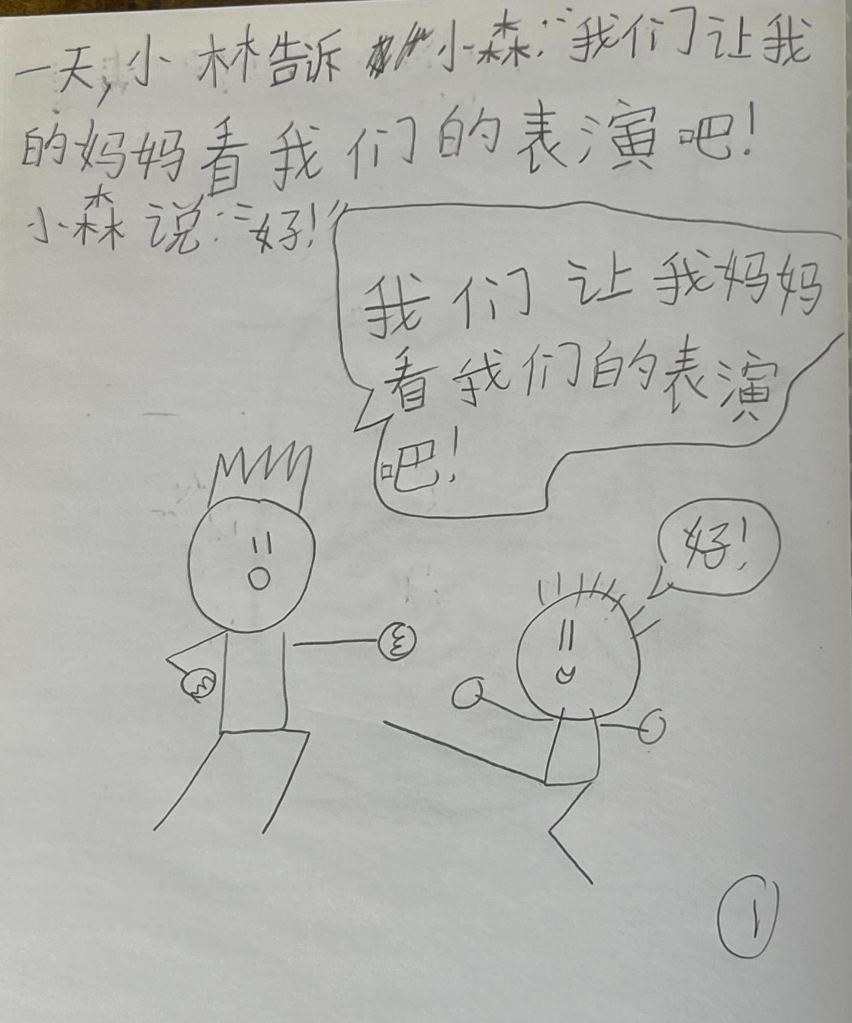 一天,小林告诉小森:“我们让我
的妈妈看我们的表演吧!
小森说:“好!”
我们让我妈妈
看我们的表演
吧!
好!
1